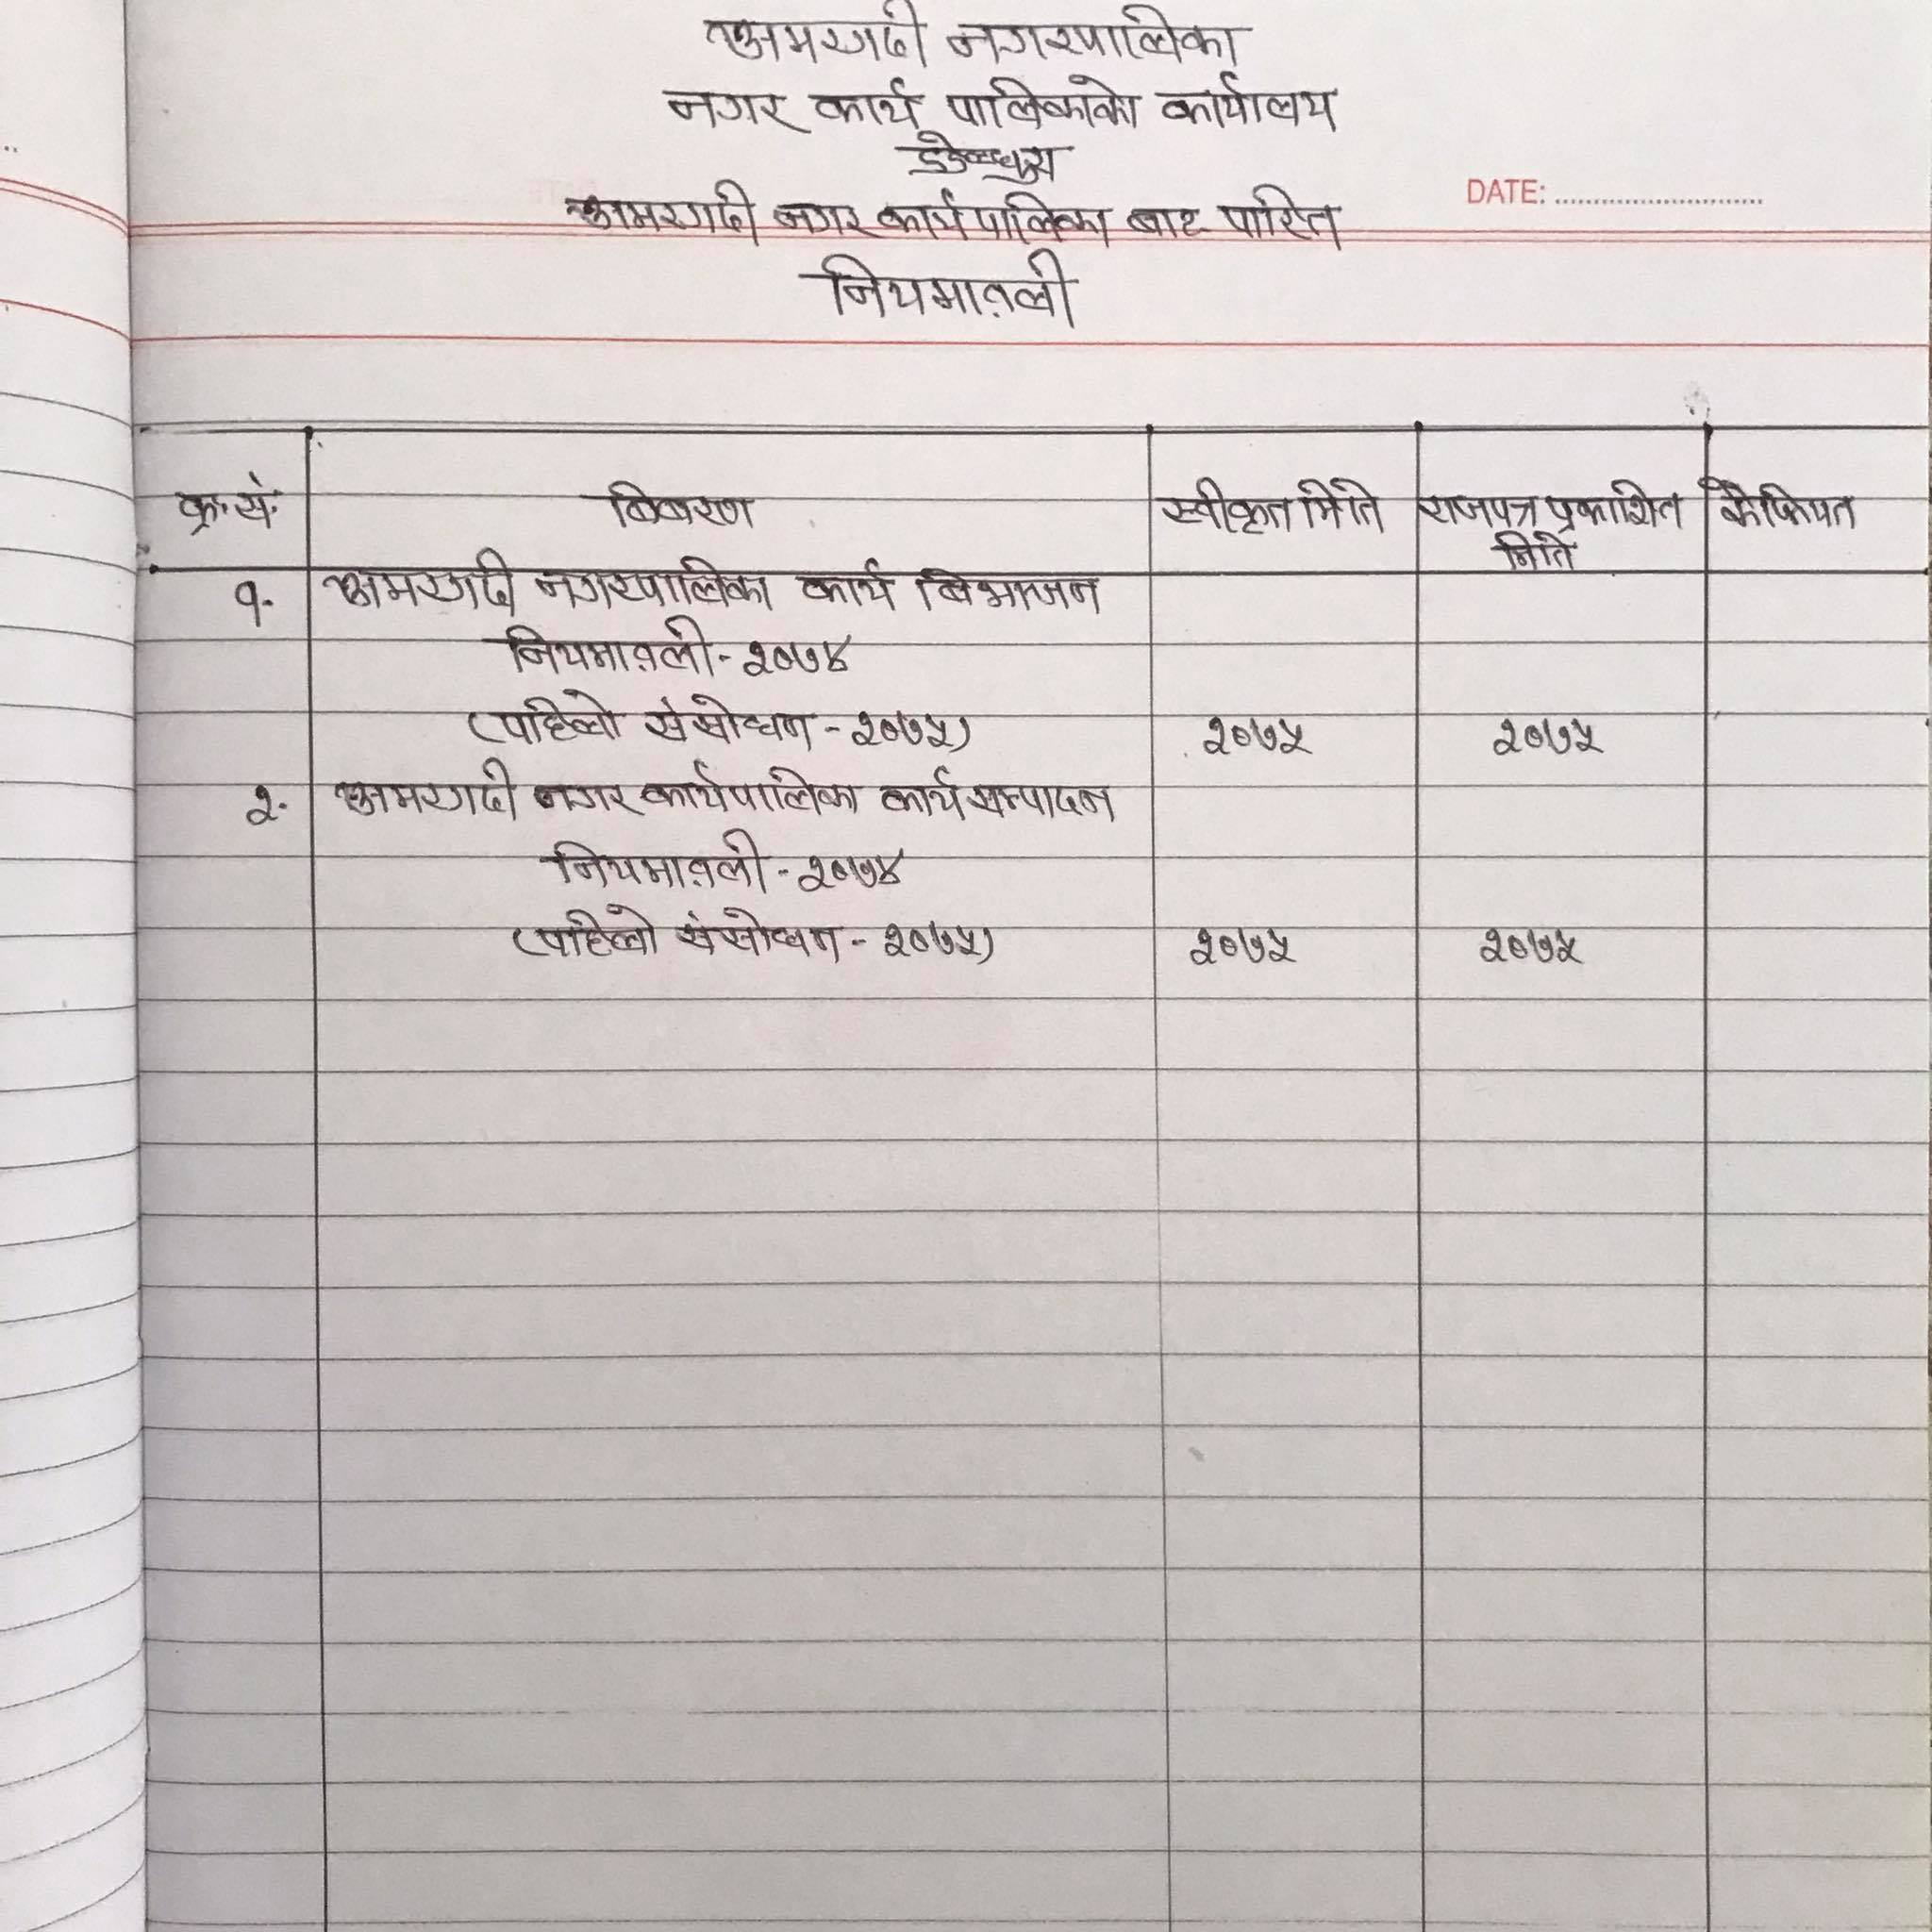 अमरगढी नगरपालिका
नगर कार्य पालिकाको कार्यालय
डडेल्धुरा
DATE: ............................
अमरगढी नगर कार्यपालिका बाट पारित
नियमावली
क्र.सं. बिबरण स्वीकृत मिति राजपत्र प्रकाशित कैफियत
मिति
१. अमरगढी नगरपालिका कार्य बिभाजन
नियमावली-२०७४
(पहिलो संसोधन-२०७५) २०७५ २०७५
२. अमरगढी नगर कार्यपालिका कार्य सम्पादन
नियमावली-२०७४
(पहिलो संसोधन-२०७५) २०७५ २०७५